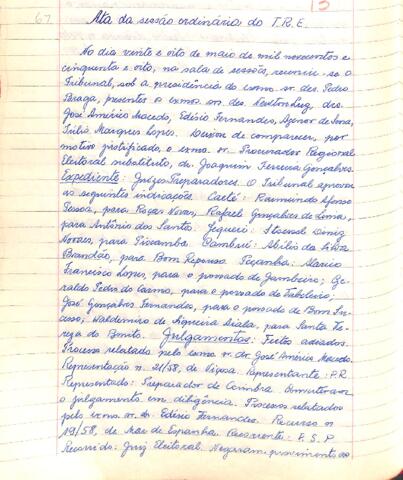 67.
Ata da sessão ordinária do T.R.E.
No dia vinte e oito de maio de mil novecentos e
cinquenta e oito, na sala de sessões, reuniu-se o
Tribunal, sob a presidência do exmo. sr. des. Pedro
Braga, presentes o exmo. sr. des. Leal, drs.
José Américo Macedo, Edésio Fernandes, Agenor de Sena,
Túlio Marques Lopes. Deixou de comparecer, por
motivo justificado, o exmo. sr. Procurador Regional
Eleitoral substituto, dr. Joaquim Ferreira Gonçalves.
Expediente: Juizes Preparadores. O Tribunal aprovou
as seguintes indicações. Caeté: Raimundo Afonso
Pessoa, para Roças Novas, Rafael Gonçalves de Lima,
para Antônio dos Santos. Jequeri: Diniz
Novaes, para Piscamba. Cambuí: Abílio da Silva
Brandão, para Bom Repouso. Peçanha: Mario
Francisco Lopes, para o povoado de Jambeiro; Ge-
raldo Pedro do Carmo, para o povoado de Taboleiro;
José Gonçalves Fernandes, para o povoado de Bom Su-
cesso; Waldemiro de Siqueira, para Santa Te-
reza do Bonito. Julgamentos: Feitos adiados.
Processo relatado pelo exmo. sr. dr. José Américo Macedo.
Representação n. 21/58, de Viçosa. Representante: P.R.
Representado: Preparador de Coimbra. Converteram
o julgamento em diligência. Processos relatados
pelo exmo. sr. dr. Edésio Fernandes. Recurso n.
19/58, de Mar de Espanha. Recorrente: P.S.P
Recorrido: Juiz Eleitoral. Negaram provimento ao